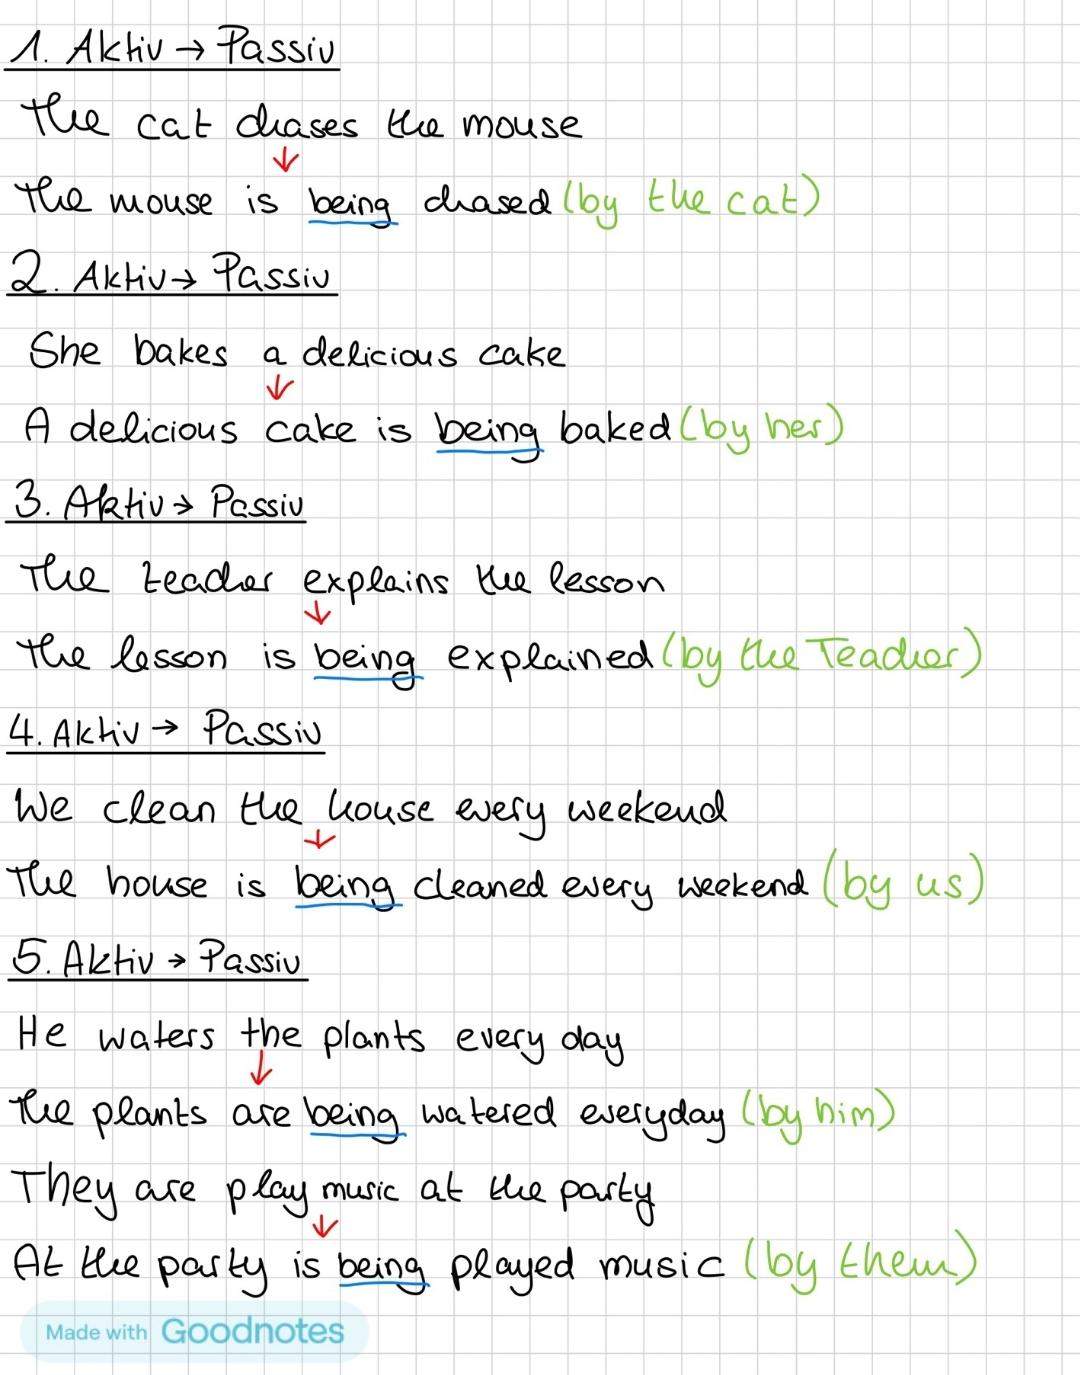 1. Aktiv → Passiv
The cat chases the mouse
↓
The mouse is being chased (by the cat)
2. Aktiv → Passiv
She bakes a delicious cake
↓
A delicious cake is being baked (by her)
3. Aktiv → Passiv
The teacher explains the lesson
↓
The lesson is being explained (by the Teacher)
4. Aktiv → Passiv
We clean the house every weekend
↓
The house is being cleaned every weekend (by us)
5. Aktiv → Passiv
He waters the plants every day
↓
The plants are being watered everyday (by him)
They are play music at the party
↓
At the party is being played music (by them)
Made with Goodnotes